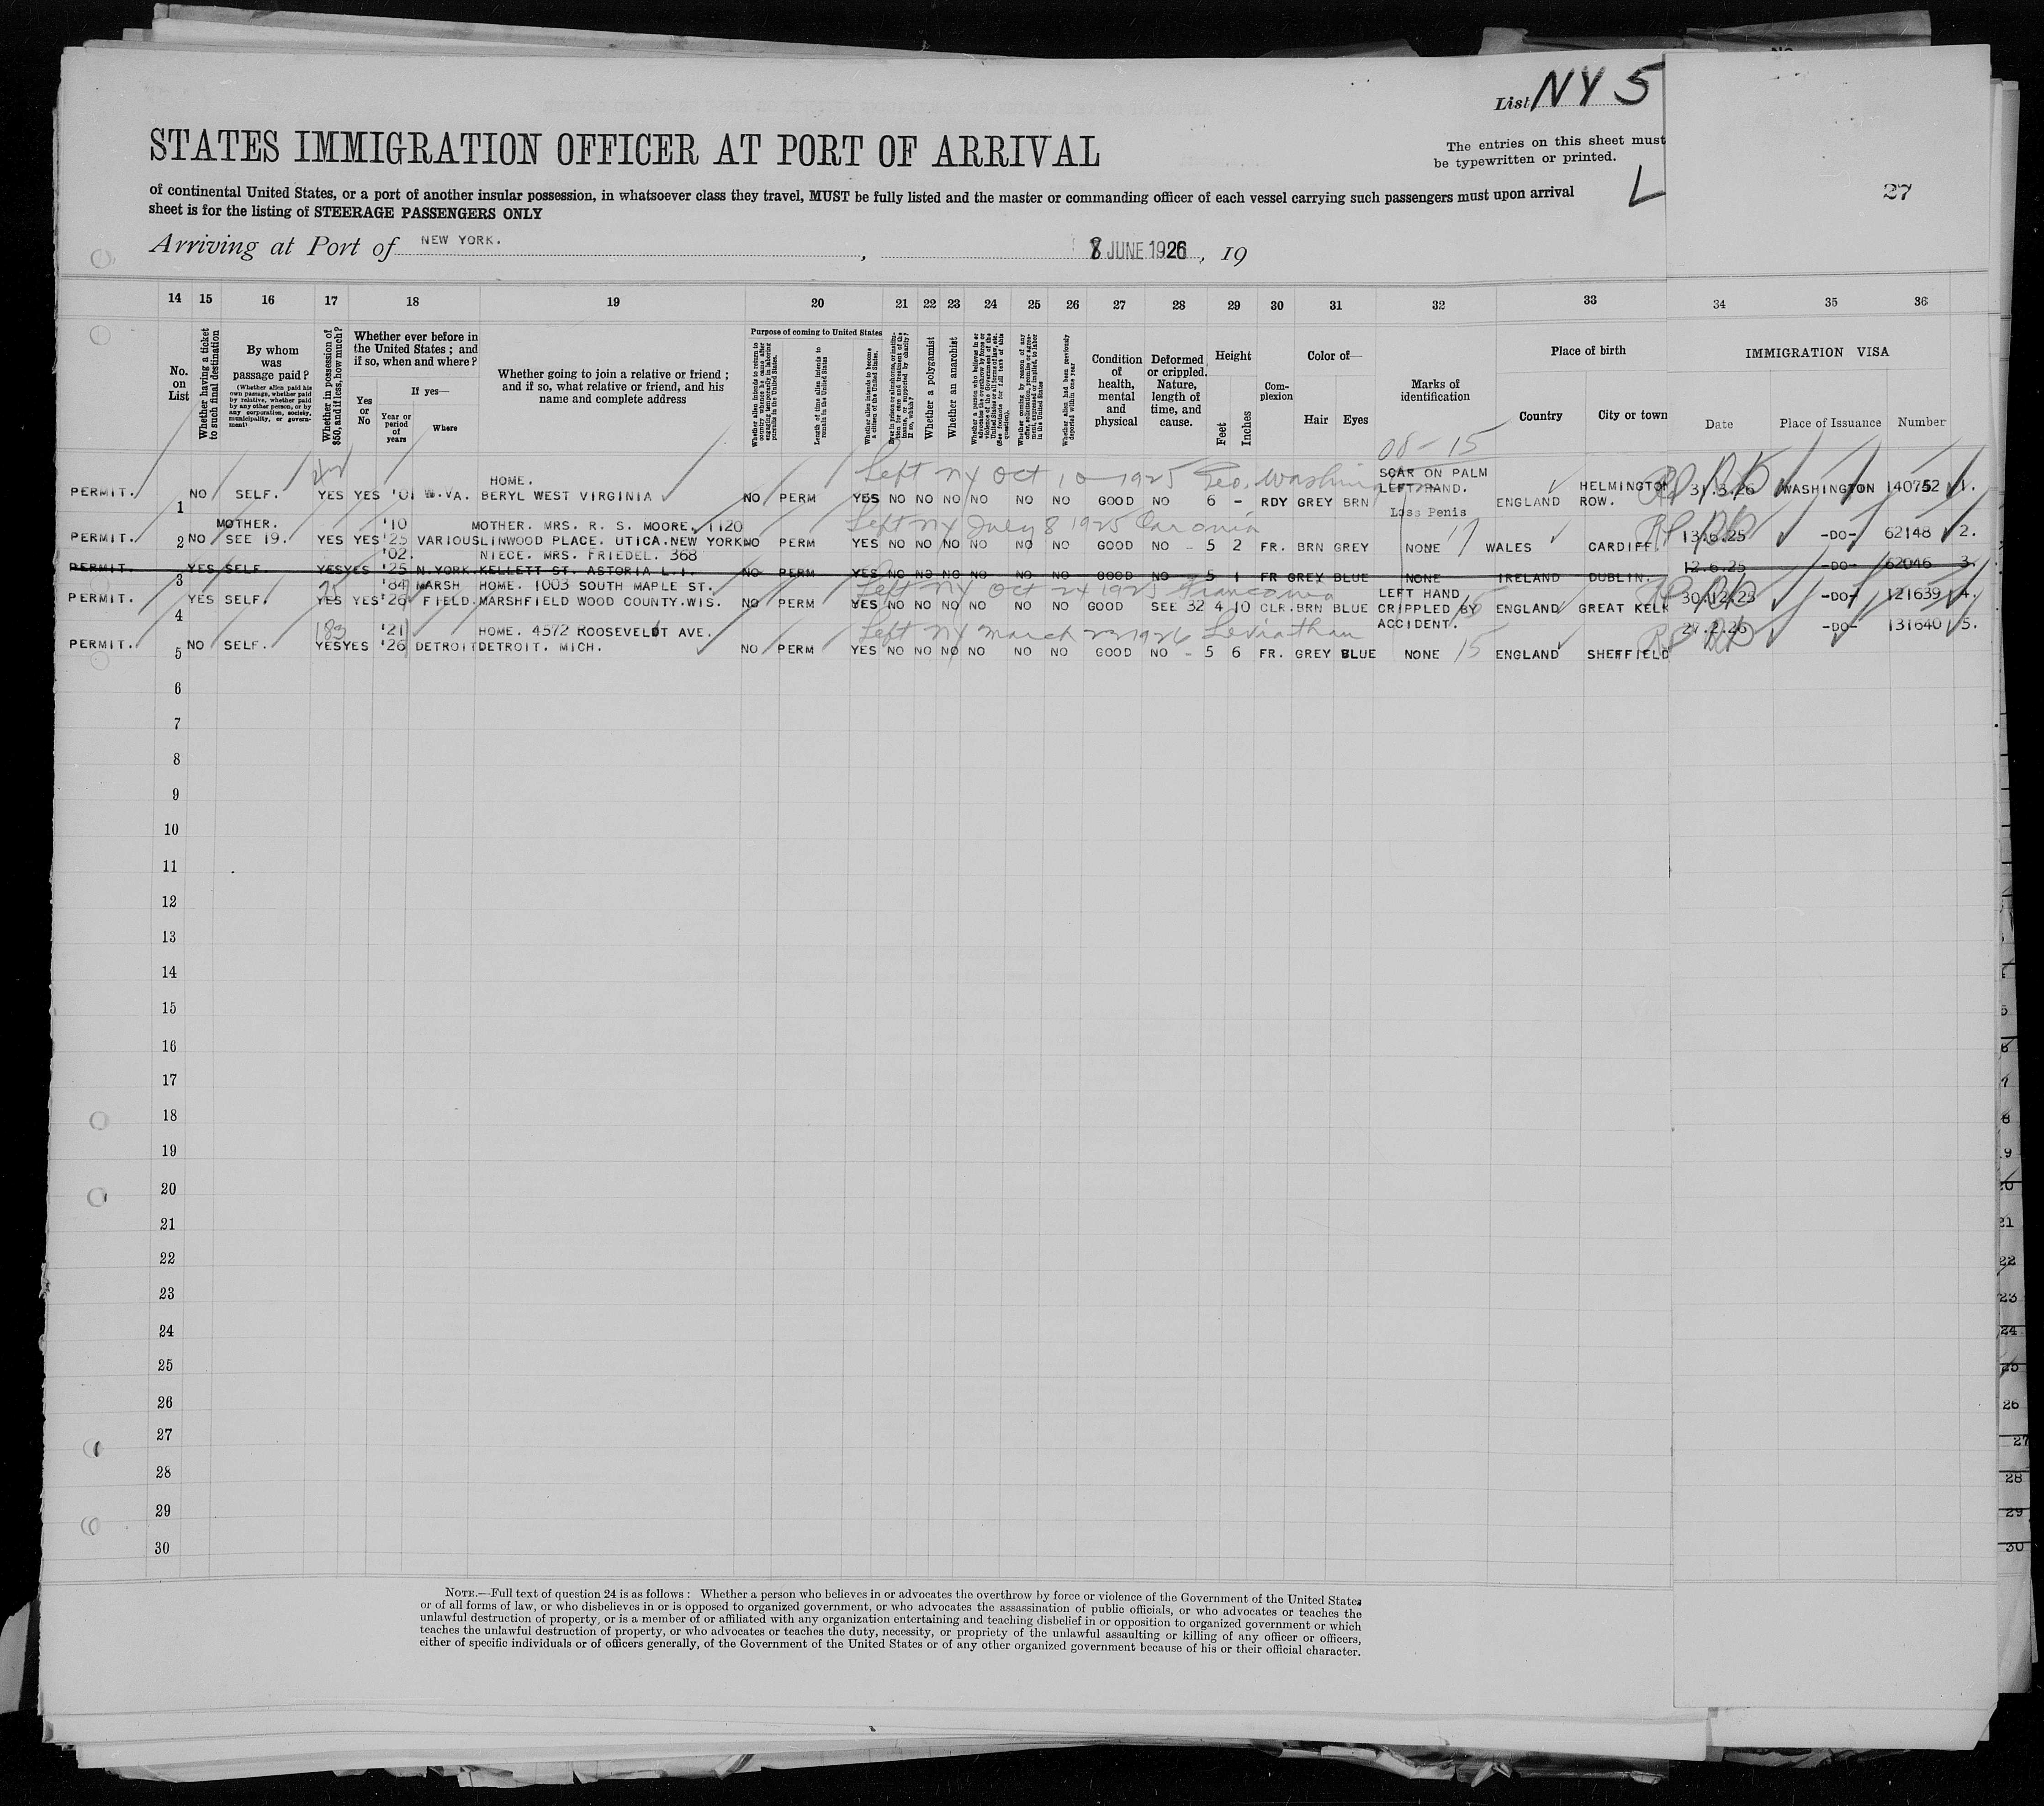 List NY 5
STATES IMMIGRATION OFFICER AT PORT OF ARRIVAL
The entries on this sheet must
be typewritten or printed.
L
27
of continental United States, or a port of another insular possession, in whatsoever class they travel, MUST be fully listed and the master or commanding officer of each vessel carrying such passengers must upon arrival
sheet is for the listing of STEERAGE PASSENGERS ONLY
Arriving at Port of NEW YORK. , 8 JUNE 1926 , 19
14 15 16 17 18 19 20 21 22 23 24 25 26 27 28 29 30 31 32 33 34 35 36
No. on List
Whether having a ticket to such final destination
By whom was passage paid?
(Whether alien paid his own passage, whether paid by relative, whether paid by any other person, or by any corporation, society, municipality, or government)
Whether in possession of $50, and if less, how much?
Whether ever before in the United States; and if so, when and where?
Yes or No
If yes—
Year or period of years
Where
Whether going to join a relative or friend; and if so, what relative or friend, and his name and complete address
Purpose of coming to United States
Whether alien intends to return to country whence he came after engaging temporarily in laboring pursuits in the United States.
Length of time alien intends to remain in the United States
Whether alien intends to become a citizen of the United States.
Ever in prison or almshouse, or institution for care and treatment of the insane, or supported by charity? If so, which?
Whether a polygamist
Whether an anarchist
Whether coming by reason of any offer, solicitation, promise or agreement, expressed or implied, to labor in the United States
Whether alien had been previously deported within one year
Condition of health, mental and physical
Deformed or crippled. Nature, length of time, and cause.
Height
Feet
Inches
Complexion
Color of—
Hair Eyes
Marks of identification
Place of birth
Country City or town
IMMIGRATION VISA
Date Place of Issuance Number
08-15
Left NY Oct 10-1925 Geo. Washington
PERMIT. 1 NO SELF. YES YES '01 W.VA. HOME. BERYL WEST VIRGINIA NO PERM YES NO NO NO NO NO NO GOOD NO 6 - RDY GREY BRN SCAR ON PALM LEFT HAND. ENGLAND HELMINGTON ROW. 31.3.26 WASHINGTON 140752 1.
Loss Penis
Left NY July 8 1925 Caronia
PERMIT. 2 NO MOTHER. SEE 19. YES YES '10 '25 VARIOUS MOTHER. MRS. R. S. MOORE. 1120 LINWOOD PLACE. UTICA.NEW YORK NO PERM YES NO NO NO NO NO NO GOOD NO - 5 2 FR. BRN GREY NONE WALES CARDIFF. 13.6.25 -DO- 62148 2.
PERMIT. 3 YES SELF. YES YES '02. '25 N.YORK. NIECE. MRS. FRIEDEL. 368 KELLETT ST. ASTORIA L.I. NO PERM YES NO NO NO NO NO NO GOOD NO 5 1 FR GREY BLUE NONE IRELAND DUBLIN. 12.6.25 -DO- 62046 3.
Left NY Oct 24 1925 Franconia
PERMIT. 4 YES SELF. YES YES '84 '26 MARSH FIELD. HOME. 1003 SOUTH MAPLE ST. MARSHFIELD WOOD COUNTY.WIS. NO PERM YES NO NO NO NO NO NO GOOD SEE 32 4 10 CLR. BRN BLUE LEFT HAND CRIPPLED BY ACCIDENT. 15 ENGLAND GREAT KELK 30.12.25 -DO- 121639 4.
183
Left NY March 23 1926 Leviathan
PERMIT. 5 NO SELF. YES YES '21 '26 DETROIT HOME. 4572 ROOSEVELDT AVE. DETROIT. MICH. NO PERM YES NO NO NO NO NO NO GOOD NO - 5 6 FR. GREY BLUE NONE 15 ENGLAND SHEFFIELD 27.2.26 -DO- 131640 5.
6
7
8
9
10
11
12
13
14
15
16
17
18
19
20
21
22
23
24
25
26
27
28
29
30
NOTE.—Full text of question 24 is as follows: Whether a person who believes in or advocates the overthrow by force or violence of the Government of the United States
or of all forms of law, or who disbelieves in or is opposed to organized government, or who advocates the assassination of public officials, or who advocates or teaches the
unlawful destruction of property, or is a member of or affiliated with any organization entertaining and teaching disbelief in or opposition to organized government or which
teaches the unlawful destruction of property, or who advocates or teaches the duty, necessity, or propriety of the unlawful assaulting or killing of any officer or officers,
either of specific individuals or of officers generally, of the Government of the United States or of any other organized government because of his or their official character.